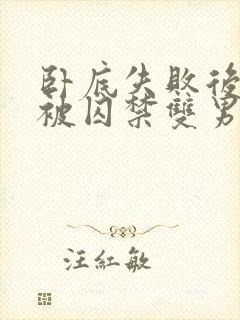 卧底失敗後
被囚禁雙男
汪紅敏